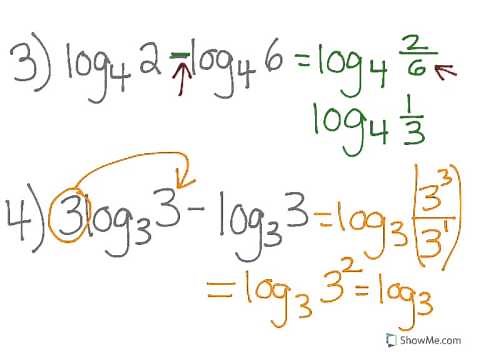 3) log₄ 2 - log₄ 6 = log₄ 2/6
log₄ 1/3
4) 3log₃ 3 - log₃ 3 = log₃ (3³/3¹)
= log₃ 3² = log₃
ShowMe.com